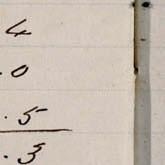 4
.0
.5
.3